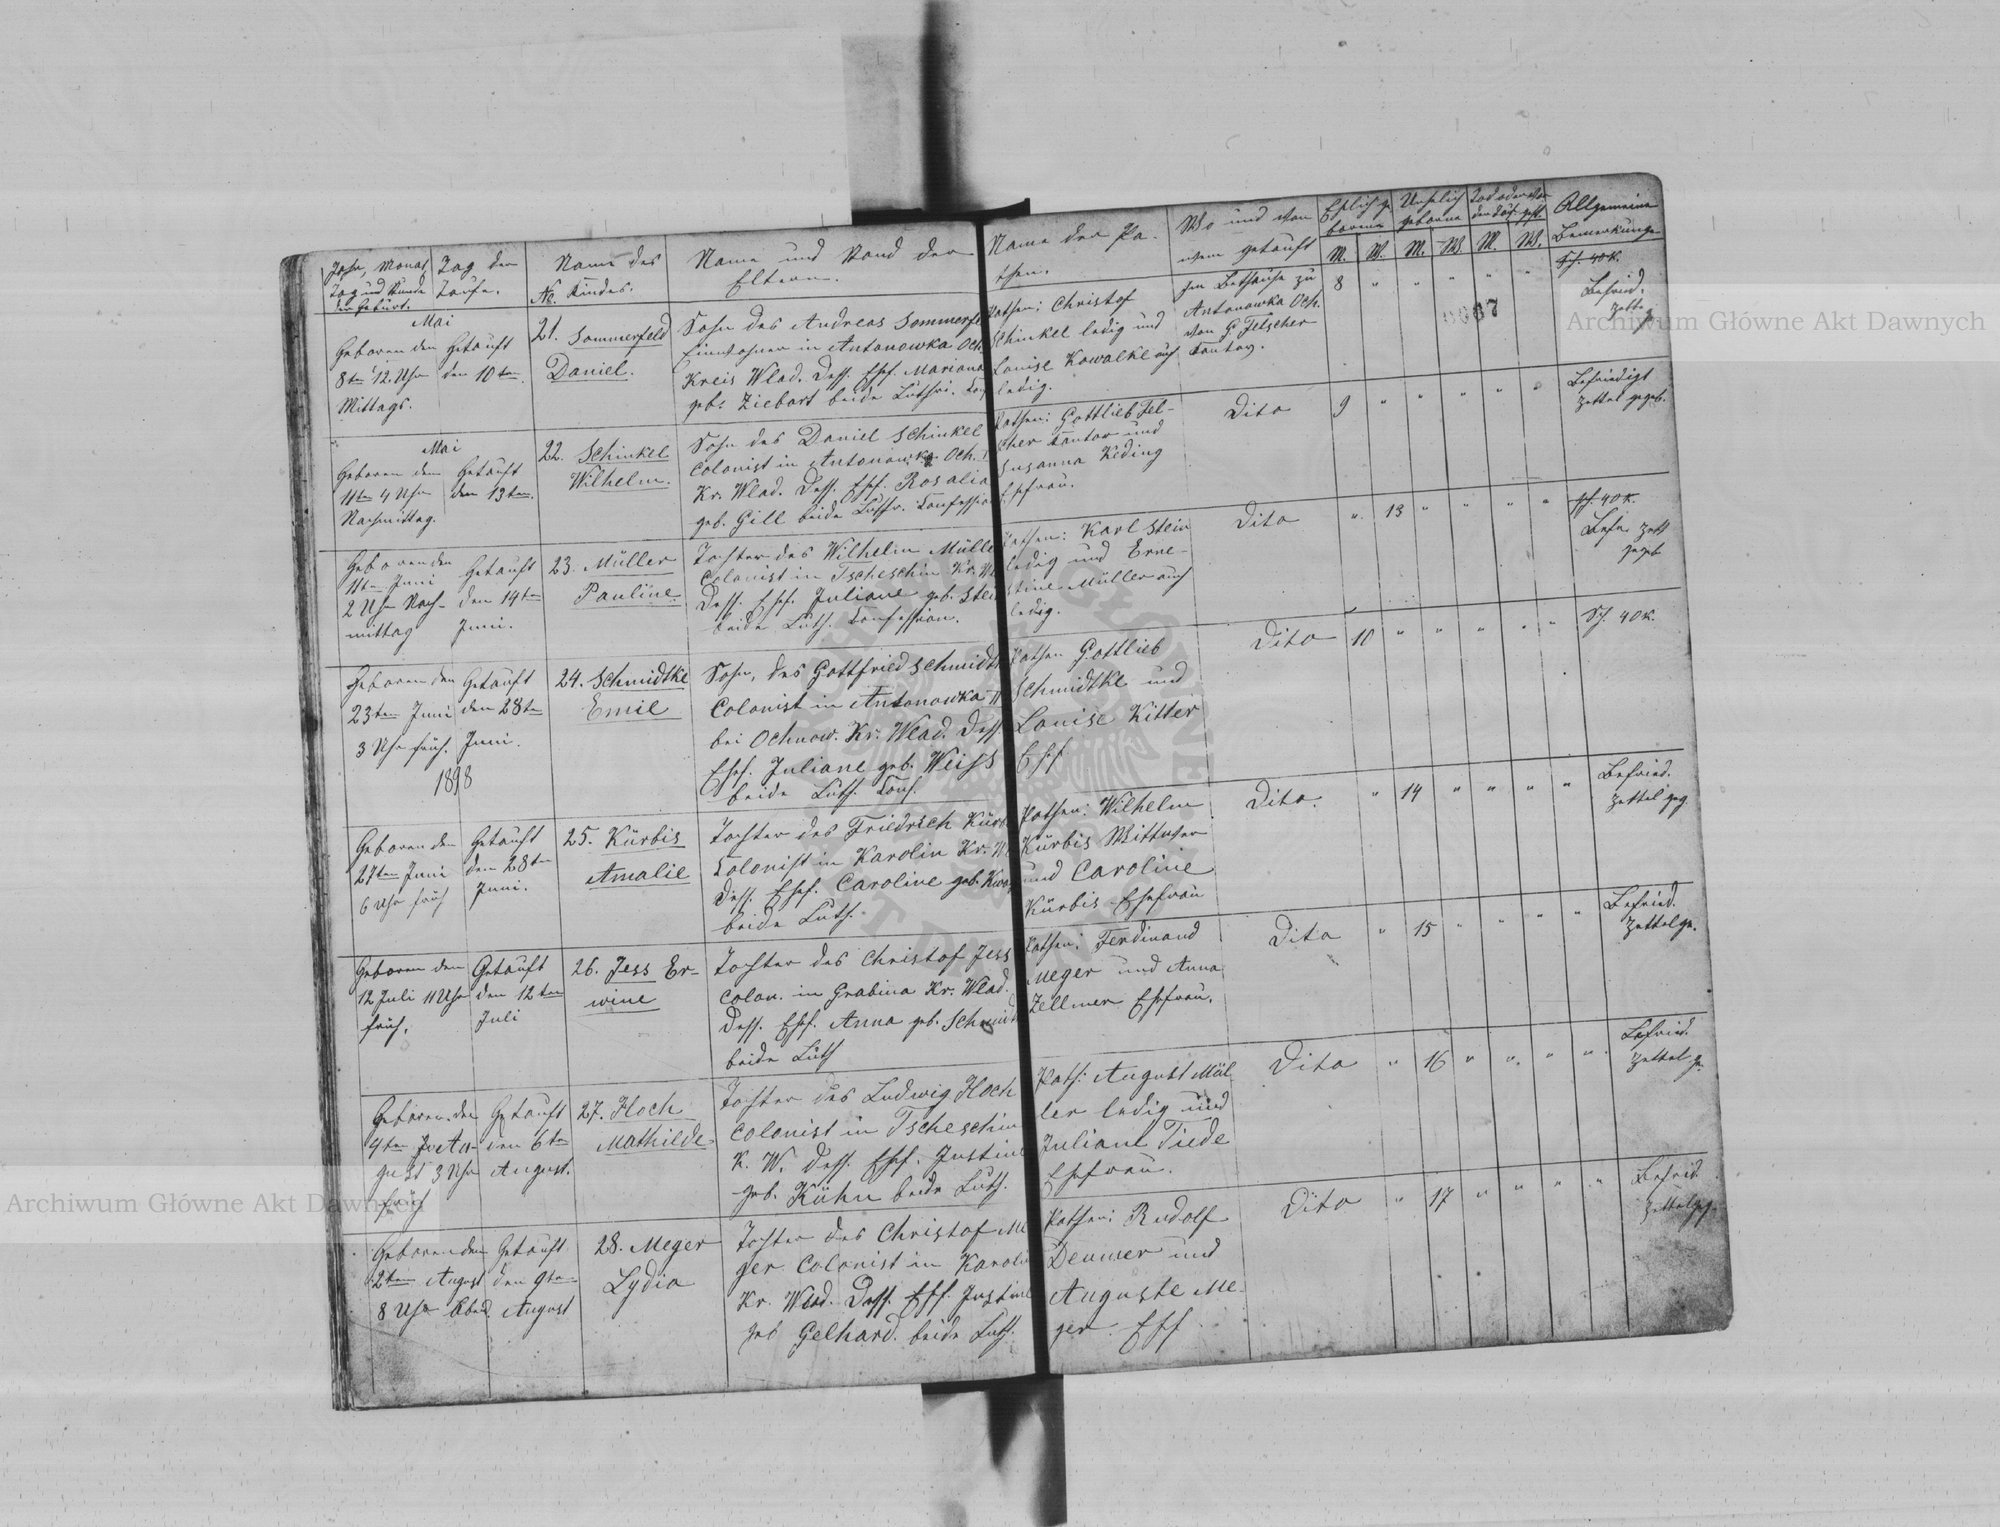 Jahr, Monat,
Tag und Stunde
der Geburt.
Tag der
Taufe.
Name des
No. Kindes.
Name und Stand der
Eltern.
Name der Pa-
then.
Wo und von
wem getauft
Ehlich ge-
borene
Unehlich
geborene
M. W. M. W. M. W.
Allgemeine
Bemerkunge
Mai
Geboren den
8ten 12 Uhr
Mittags.
Getauft
den 10ten
21. Sommerfeld
Daniel.
Sohn des Andreas Sommerfe
Einwohner in Antonowka Och.
Kreis Wlad. Dess. Ehef. Mariana
geb. Ziebart beide Luthri.
Pathen: Christof
Schinkel ledig und
Louise Kowalke auch
ledig.
Im Bethause zu
Antonowka Och.
von G. Felscher
Kantor.
8 " " " " "
Sch. 40 K.
Befried.
Zettg
Mai
Geboren den
11ten 4 Uhr
Nachmittag.
Getauft
den 13ten.
22. Schinkel
Wilhelm.
Sohn des Daniel Schinkel
Colonist in Antonowka Och.
Kr. Wlad. Dess. Ehf. Rosalia
geb. Gill beide Luthr. Confession
Pathen: Gottlieb Fel-
scher Kantor und
Susanna Keding
Ehefrau.
Dito
9 " " " " "
Befriedigt
Zettel gegeb.
Geboren den
11ten Juni
2 Uhr Nach-
mittag
Getauft
den 14ten
Juni.
23. Müller
Pauline
Tochter des Wilhelm Mülle
Colonist in Tscheschin Kr. W
Dess. Ehf. Juliane geb. Stei
beide Luth. Confession.
Pathen: Karl Stein
ledig und Erne-
stine Müller auch
ledig.
Dito
" 13 " " " "
Sch. 40 K.
Befr. Zett
gegeb
Geboren den
23ten Juni
3 Uhr früh.
Getauft
den 28ten
Juni.
1898
24. Schmidtke
Emil
Sohn, des Gottfried Schmidt
Colonist in Antonowka
bei Ochnow. Kr. Wlad. Dess.
Ehef. Juliane geb. Weiss
beide Luth. Conf.
Pathen Gottlieb
Schmidtke und
Louise Kitter
Ehf
Dito
10 " " " " "
Sch. 40 K.
Geboren den
27ten Juni
6 Uhr früh
Getauft
den 28ten
Juni.
25. Kürbis
Amalie
Tochter des Friedrich Kürb
Colonist in Karolin Kr. W
Dess. Ehef. Caroline geb.
beide Luth.
Pathen: Wilhelm
Kürbis Wittwer
und Caroline
Kürbis Ehefrau
Dito.
" 14 " " " "
Befried.
Zettel geg.
Geboren den
12 Juli 11 Uhr
früh.
Getauft
den 12ten
Juli
26. Jess Er-
wine
Tochter des Christof Jess
Colon. in Grabina Kr. Wlad.
Dess. Ehef. Anna geb. Schmidt
beide Luth
Pathen: Ferdinand
Meger und Anna
Zellmer Ehefrau.
Dito
" 15 " " " "
Befried.
Zettel ge.
Geboren den
4ten Au-
gust 3 Uhr
früh
Getauft
den 6ten
August.
27. Hoch
Mathilde
Tochter des Ludwig Hoch
Colonist in Tscheschin
K. W. Dess. Ehef. Justine
geb. Kühn beide Luth.
Path: August Mül-
ler ledig und
Juliane Tiede
Ehefrau.
Dito
" 16 " " " "
Befried.
Zettel ge.
Geboren den
2ten August
8 Uhr Abend
Getauft
den 9ten
August
28. Meger
Lydia
Tochter des Christof Me
ger Colonist in Karoli
Kr. Wlad. Dess. Ehf. Justine
geb Gelhard. beide Luth.
Pathen: Rudolf
Demmer und
Auguste Me-
ger. Ehf
Dito
" 17 " " " "
Befried.
Zettel geg.
Archiwum Główne Akt Dawnych
Archiwum Główne Akt Dawnych